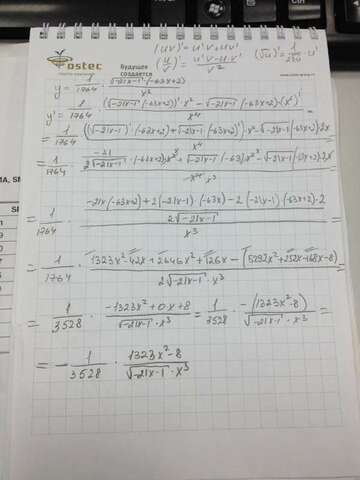 (uv)' = u'v + uv'
ostec
Будущее создается
(u/v)' = (u'v - u v')/v²
(√u)' = 1/(2√u) · u'
y = 1/1764 · √(-21x-1) · (-63x+2) / x²
y' = 1/1764 · ((√(-21x-1) · (-63x+2))' · x² - √(-21x-1) · (-63x+2) · (x²)') / x⁴ =
= 1/1764 · (((√(-21x-1))' (-63x+2) + √(-21x-1) · (-63x+2)') · x² - √(-21x-1) · (-63x+2) · 2x) / x⁴ =
= 1/1764 · ((-21/(2√(-21x-1)) · (-63x+2) + √(-21x-1) · (-63)) x² - √(-21x-1) · (-63x+2) · 2x) / x⁴ x³
= 1/1764 · ((-21x · (-63x+2) + 2 (-21x-1) · (-63x) - 2 (-21x-1) · (-63x+2) · 2) / (2√(-21x-1))) / x³
= 1/1764 · (1323x² - 42x + 2646x² + 126x - (5292x² + 252x - 168x - 8)) / (2√(-21x-1) · x³) =
= 1/3528 · (-1323x² + 0·x + 8) / (√(-21x-1) · x³) = 1/3528 · (-(1323x² - 8)) / (√(-21x-1) · x³) =
= - 1/3528 · (1323x² - 8) / (√(-21x-1) · x³)